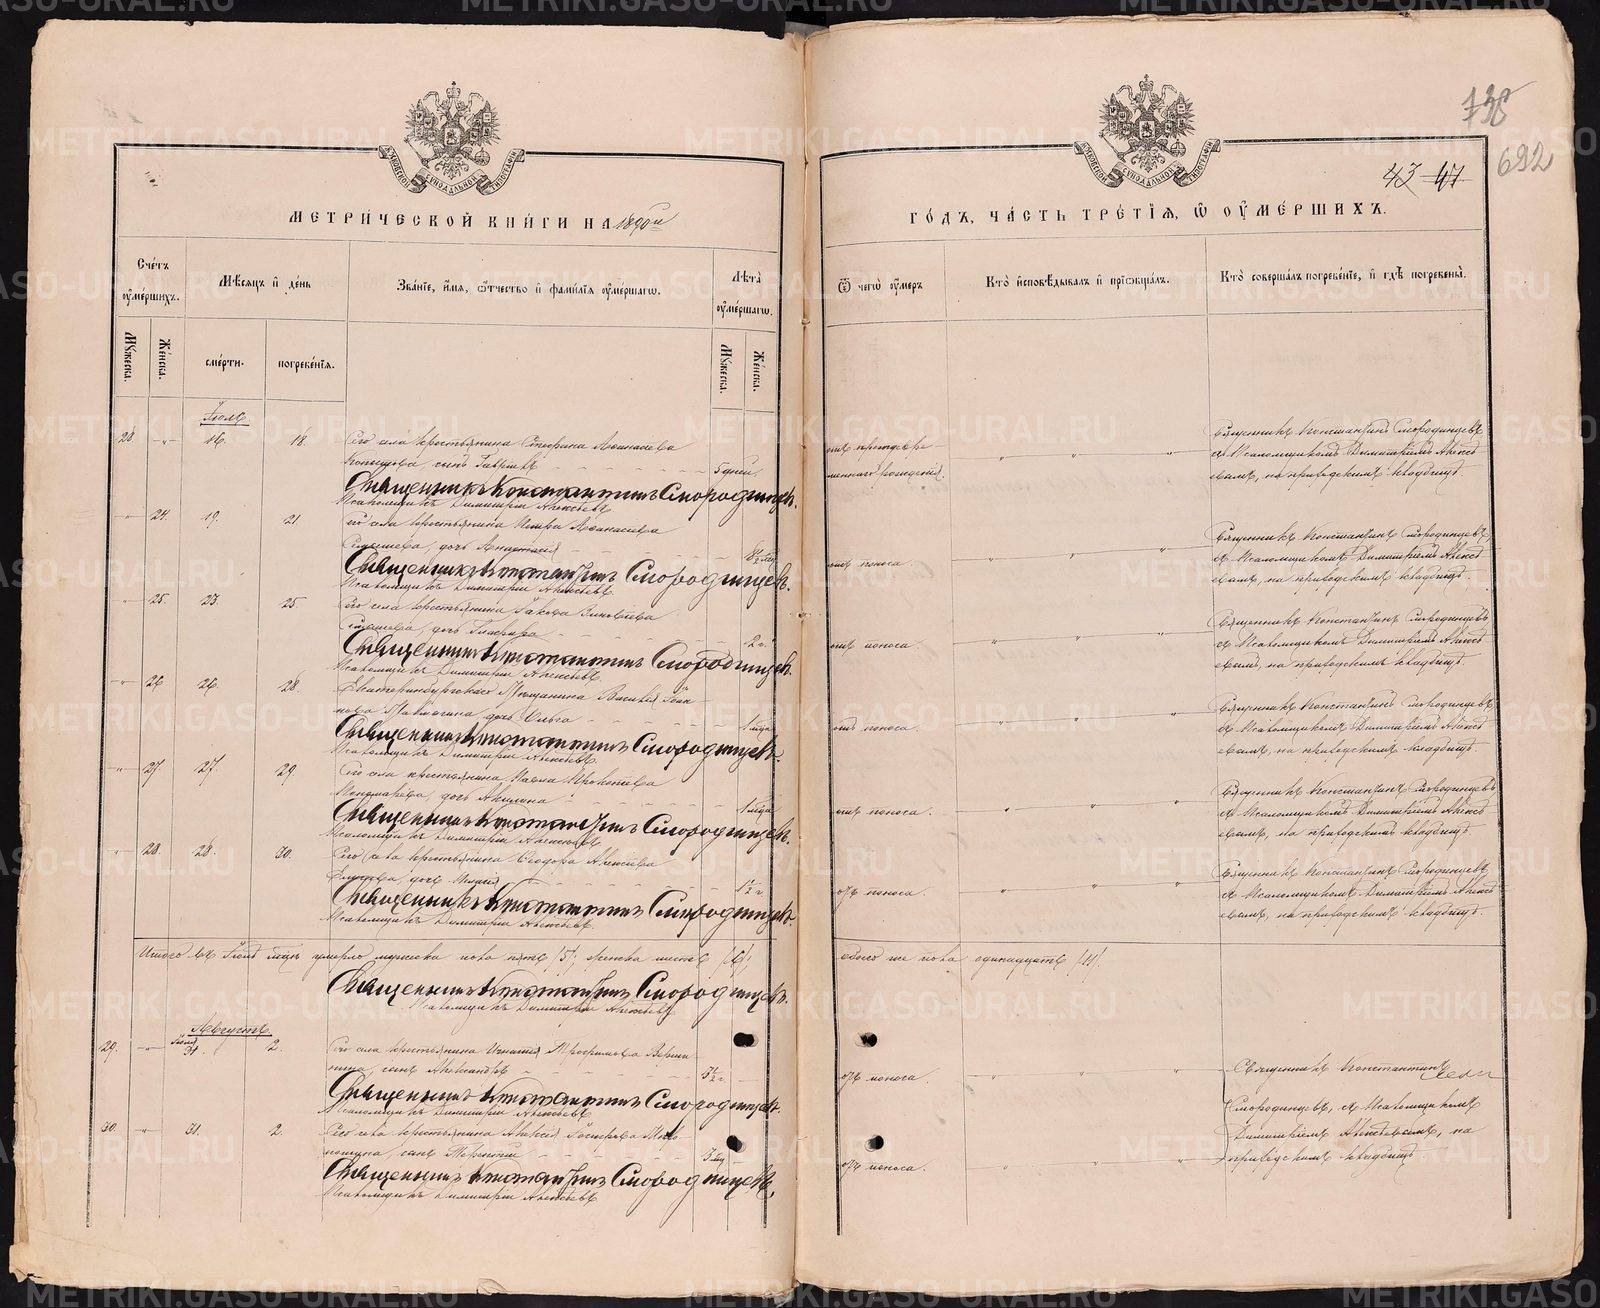 МЕТРИ́ЧЕСКОЙ КНИ́ГИ НА 1890й
Сче́тъ ᲂу҆ме́ршихъ.
Мѣ́сяцъ и҆ де́нь
Зва́нїе, и҆́мя, ѻ҆́тчество и҆ фами́лїя ᲂу҆ме́ршагѡ.
Лѣ́та ᲂу҆ме́ршагѡ.
Мꙋ́жеска.
Же́нска.
сме́рти.
погребе́нїя.
Мꙋ́жеска.
Же́нска.
Іюль
16. 18. Сего села крестьянина Стефана Аѳанасьева
сынъ Гавріилъ 5 дней.
Священникъ Константинъ Смородинцевъ.
Псаломщикъ Димитрій Алексѣевъ
24. 19. 21 Сего села крестьянина Петра Аѳанасьева
дочь Анастасія
Священникъ Константинъ Смородинцевъ.
Псаломщикъ Димитрій Алексѣевъ.
25. 23. 25. Сего села крестьянина Іакова Зиновіева
дочь Глафира 2 г.
Священникъ Константинъ Смородинцевъ.
Псаломщикъ Димитрій Алексѣевъ.
26 26. 28. Екатеринбургскаго Мѣщанина Василія Іоан
нова дочь Ольга
Священникъ Константинъ Смородинцевъ.
Псаломщикъ Димитрій Алексѣевъ
27. 27. 29. Сего села крестьянина Павла Прокопіева
Пономарева, дочь Акилина
Священникъ Константинъ Смородинцевъ.
Псаломщикъ Димитрій Алексѣевъ
28. 28. 30. Сего села крестьянина Ѳеодора Алексѣева
дочь 1½ г
Священникъ Константинъ Смородинцевъ.
Псаломщикъ Димитрій Алексѣевъ.
Итого въ Іюлѣ мѣсяцѣ умерло мужеска пола пять /5/, женска шесть /6/,
Священникъ Константинъ Смородинцевъ.
Псаломщикъ Димитрій Алексѣевъ
Августъ
29. Іюля 31. 2. Сего села крестьянина Игнатія Трофимова Верши
нина, сынъ Александръ
Священникъ Константинъ Смородинцевъ.
Псаломщикъ Димитрій Алексѣевъ
30. 31. 2. Сего села крестьянина Алексія
сынъ Терентій
Священникъ Константинъ Смородинцевъ.
Псаломщикъ Димитрій Алексѣевъ
692
43 47
ГО́ДЪ, ЧА́СТЬ ТРЕ́ТЇЯ, Ѡ҆ ОУ҆МЕ́РШИХЪ.
Ѿ чегѡ̀ ᲂу҆́меръ
Кто̀ и҆сповѣ́дывалъ и҆ прїѡбща́лъ.
Кто̀ соверша́лъ погребе́нїе, и҆ гдѣ̀ погребены̀.
отъ преждевре
меннаго рожденія.
Священникъ Константинъ Смородинцевъ
съ Псаломщикомъ Димитріемъ Алексѣ
евымъ, на приходскомъ кладбищѣ
отъ поноса.
Священникъ Константинъ Смородинцевъ
съ Псаломщикомъ Димитріемъ Алексѣ
евымъ, на приходскомъ кладбищѣ.
отъ поноса.
Священникъ Константинъ Смородинцевъ
съ Псаломщикомъ Димитріемъ Алексѣ
евымъ, на приходскомъ кладбищѣ.
отъ поноса.
Священникъ Константинъ Смородинцевъ
съ Псаломщикомъ Димитріемъ Алексѣ
евымъ, на приходскомъ кладбищѣ.
отъ поноса.
Священникъ Константинъ Смородинцевъ
съ Псаломщикомъ Димитріемъ Алексѣ
евымъ, на приходскомъ кладбищѣ
отъ поноса.
Священникъ Константинъ Смородинцевъ
съ Псаломщикомъ Димитріемъ Алексѣ
евымъ, на приходскомъ кладбищѣ.
обоего же пола одинадцать /11/.
отъ поноса.
Священникъ Константинъ
Смородинцевъ, съ Псаломщикомъ
Димитріемъ Алексѣевымъ, на
приходскомъ кладбищѣ.
отъ поноса.
METRIKI.GASO-URAL.RU